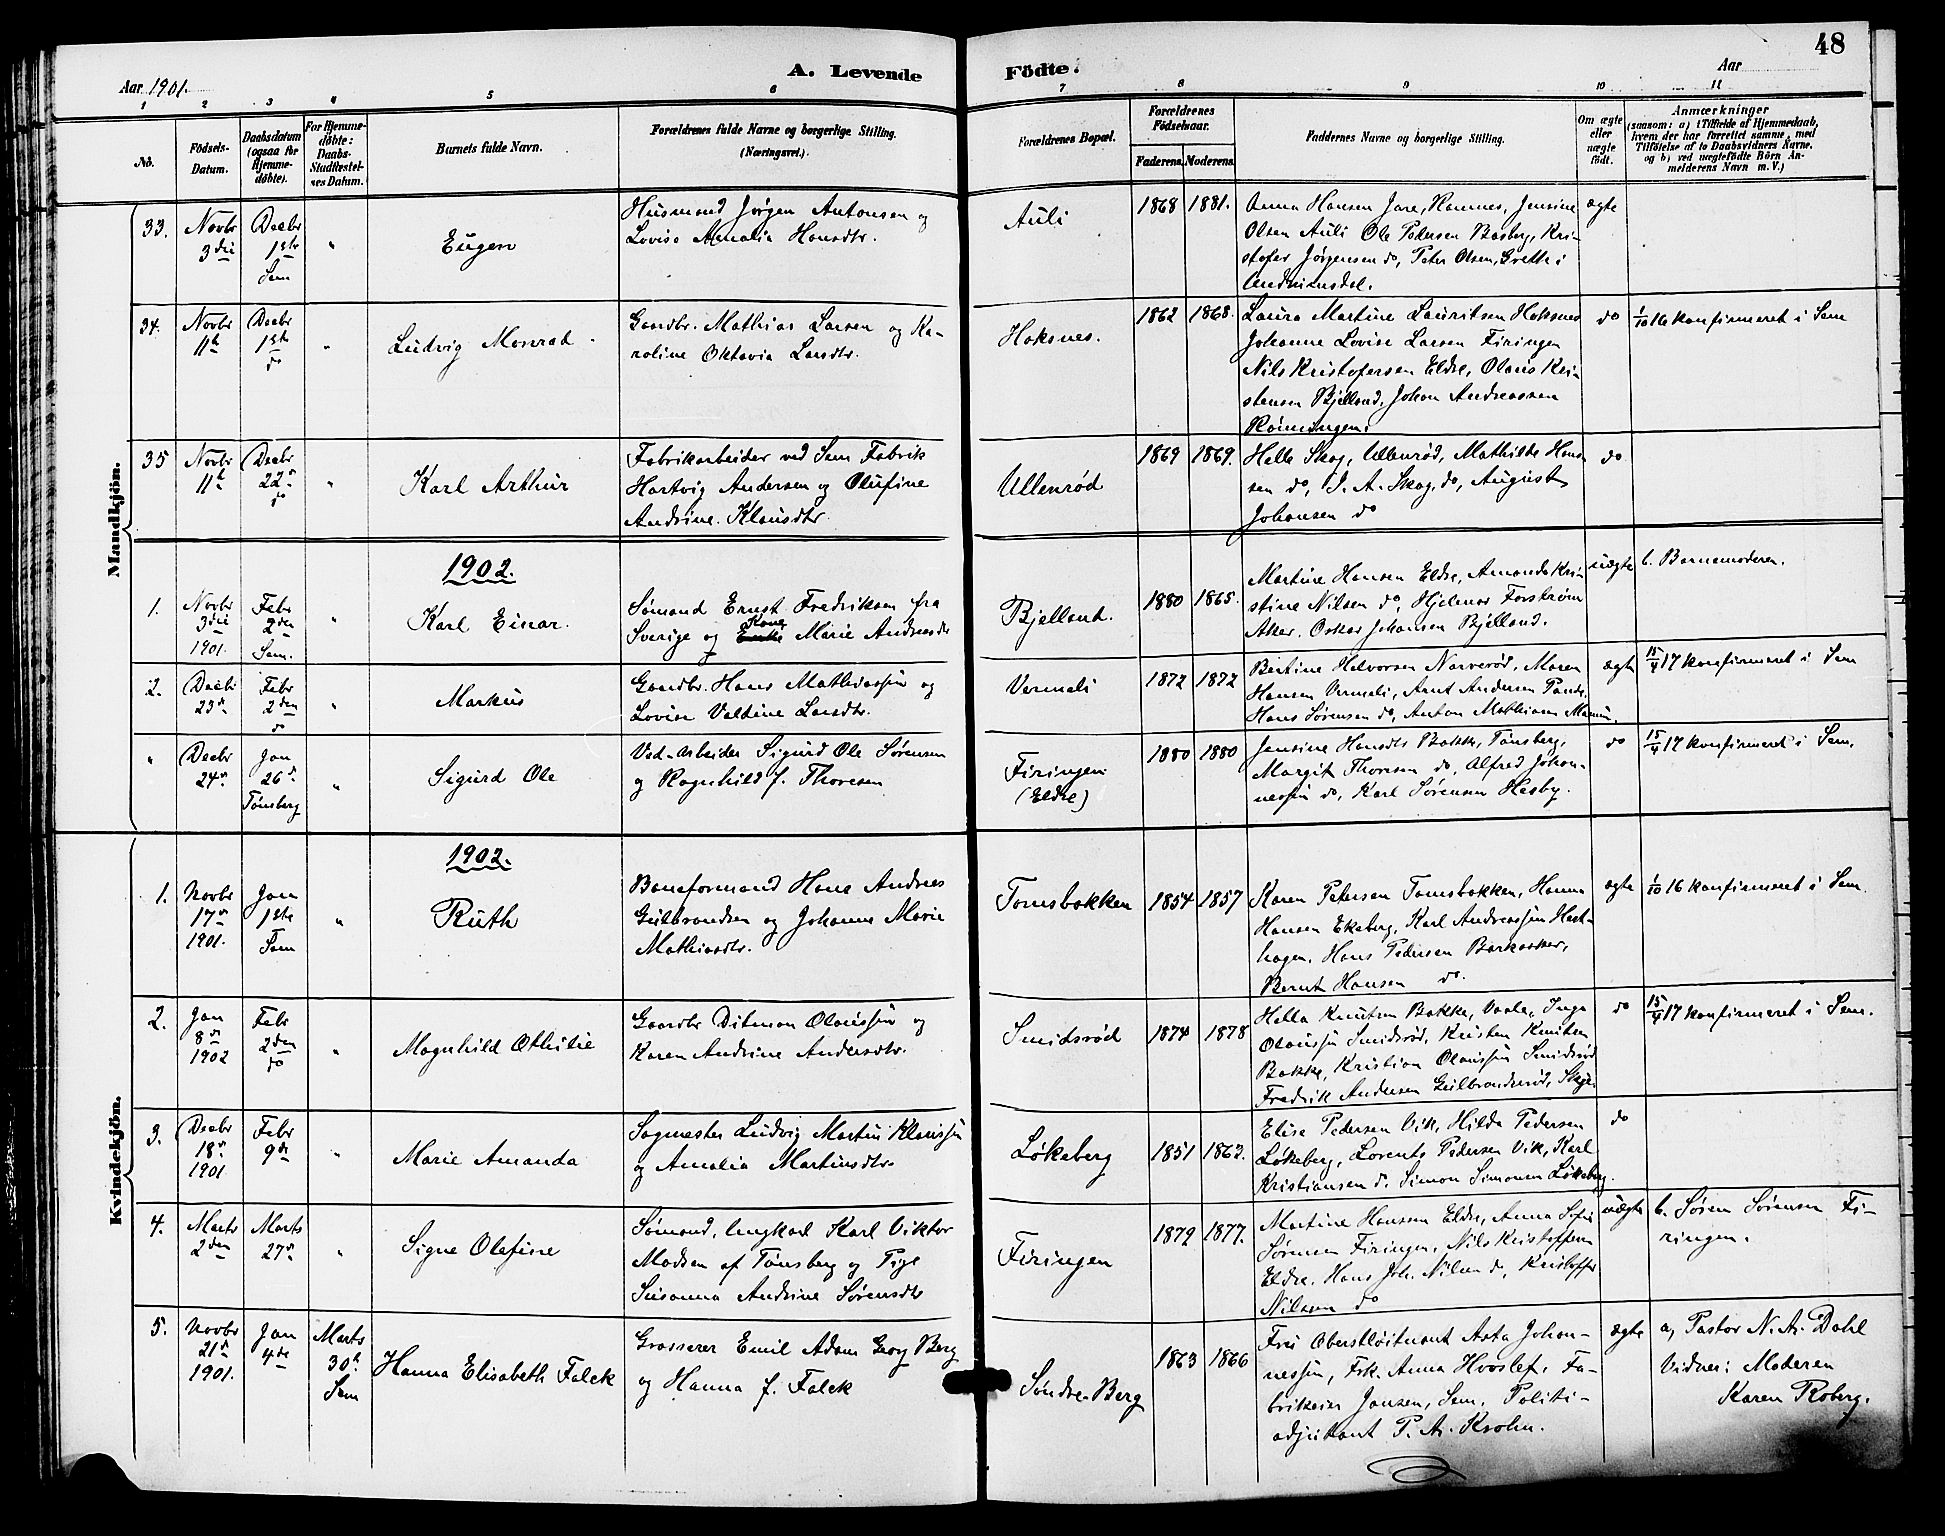 48
Aar 1901.
A. Levende
Födte.
Aar
1 2 3 4 5 6 7 8 9 10 11
No.
Födsels-Datum.
Daabsdatum (ogsaa for Hjemme-døbte).
For Hjemme-døbte: Daabs-Stadfæstel-ses Datum.
Barnets fulde Navn.
Forældrenes fulde Navne og borgerlige Stilling. (Næringsvei.)
Forældrenes Bopæl.
Forældrenes Födselsaar.
Faderens. Moderens.
Faddernes Navne og borgerlige Stilling.
Om ægte eller uægte født.
Anmærkninger
(saasom: a) i Tilfælde af Hjemmedaab,
hvem der har forrettet samme, med
Tilföielse af to Daabsvidners Navne,
og b) ved uægtefödte Börn An-
melderens Navn m. V.)
Mandkjön.
33. Novbr 3die Decbr 1ste Sem " Eugen
Husmand Jørgen Antonsen og
Lovise Amalia Hansdtr.
Auli 1868 1881.
Anna Hansen Jare, Ramnes, Jensine
Olsen Auli Ole Pedersen Basberg, Kri-
stofer Jørgensen do, Peter Olsen, Grette i
Andebusdal.
ægte
34. Novbr 11te Decbr 1ste do " Ludvig Monrad.
Gaardbr. Mathias Larsen og Ka-
roline Oktavia Larsdtr.
Haksnes. 1862 1868.
Laura Martine Lauritsen Haksnes
Johanne Lovise Larsen Firingen
Nils Kristofersen Eldre, Olaus Kri-
stensen Bjelland, Johan Andreassen
Rønningen.
do 1/10 16 konfirmeret i Sem
35 Novbr 11te Decbr 22de do " Karl Arthur
Fabrikarbeider ved Sem Fabrik
Hartvig Andersen og Olufine
Andrine Klausdtr.
Ullenrød 1869 1869.
Helle Skog, Ullenrød, Mathilde Han-
sen do, J. A. Skog, do, August
Johansen do
do
1902.
1. Novbr 3die 1901. Febr 2den Sem. " Karl Einar.
Sømand Ernst Fredriksen fra
Sverige og Kone Marie Andreasdtr
Bjelland. 1880 1865.
Martine Hansen Eldre, Amanda Kri-
stine Nilsen do, Hjelmar Forstrøm
Aker. Oskar Johansen Bjelland.
uægte b. Barnemoderen.
2. Decbr 23de Febr 2den do " Markus
Gaardbr. Hans Mathiassen og
Lovise Valtine Larsdtr.
Vermeli 1872 1872
Bertine Halvorsen Narverød, Maren
Hansen Vermeli, Arnt Andersen
Hans Sørensen do, Anton Mathiasen
ægte 15/4 17 konfirmeret i Sem
" Decbr 24de Jan 26de Tønsberg " Sigurd Ole
Ved-Arbeider Sigurd Ole Sørensen
og Ragnhild f. Thoresen
Firingen (Eldre) 1880 1880
Jensine Hansdtr Bakke, Tønsberg,
Margit Thoresen do, Alfred Johan-
nessen do, Karl Sørensen Hesby.
do 15/4 17 konfirmeret i Sem.
Kvindekjön.
1902.
1. Novbr 17de 1901. Jan 1ste Sem " Ruth
Baneformand Hans Andreas
Gulbrandsen og Johanne Marie
Mathiasdtr.
Tomsbakken 1854 1857
Karen Petersen Tomsbakken, Hanna
Hansen Ekeberg, Karl Andreassen Hask-
hagen. Hans Pedersen Barkaaker,
Bernt Hansen do.
ægte 1/10 16 konfirmeret i Sem.
2. Jan 8de 1902 Febr 2den do " Magnhild Othilie
Gaardbr Ditman Olaussen og
Karen Andrine Andersdtr.
Smidsrød 1874 1878
Hella Knutsen Bakke, Vaale, Inga
Olaussen Smidsrød, Kristen Knutsen
Bakke, Kristian Olaussen Smidsrød
Fredrik Andersen Gulbrandsrød,
do 15/4 17 konfirmeret i Sem.
3. Decbr 18de 1901. Febr 9de " Marie Amanda
Sagmester Ludvig Martin Klaussen
og Amalia Martinsdtr.
Løkeberg 1851 1862.
Elise Pedersen Vik, Hilda Pedersen
Løkeberg, Lorents Pedersen Vik, Karl
Kristiansen do. Simon Simonsen Løkeberg.
do
4. Marts 2den Marts 27de " Signe Olefine
Sømand, Ungkarl Karl Viktor
Madsen af Tønsberg og Pige
Susanna Andrine Sørensdtr
Firingen 1879 1877.
Martine Hansen Eldre, Anna Sofie
Sørensen Firingen, Nils Kristoffersen
Eldre, Hans Joh. Nilsen do, Kristoffer
Nilsen do
uægte b. Søren Sørensen Fi-
ringen.
5. Novbr 21de 1901. Jan 4de Marts 30te Sem Hanna Elisabeth Falck
Grosserer Emil Adam Georg Berg
og Hanna f. Falck
Søndre-Berg 1863 1866
Fru Oberstløitnant Asta Johan-
nessen, Frk. Anna Hvoslef. Fa-
brikeier Jansen, Sem. Politi-
adjutant P. A. Krohn.
ægte a, Pastor N. A. Dahl
Vidner: Moderen
Karen Roberg.